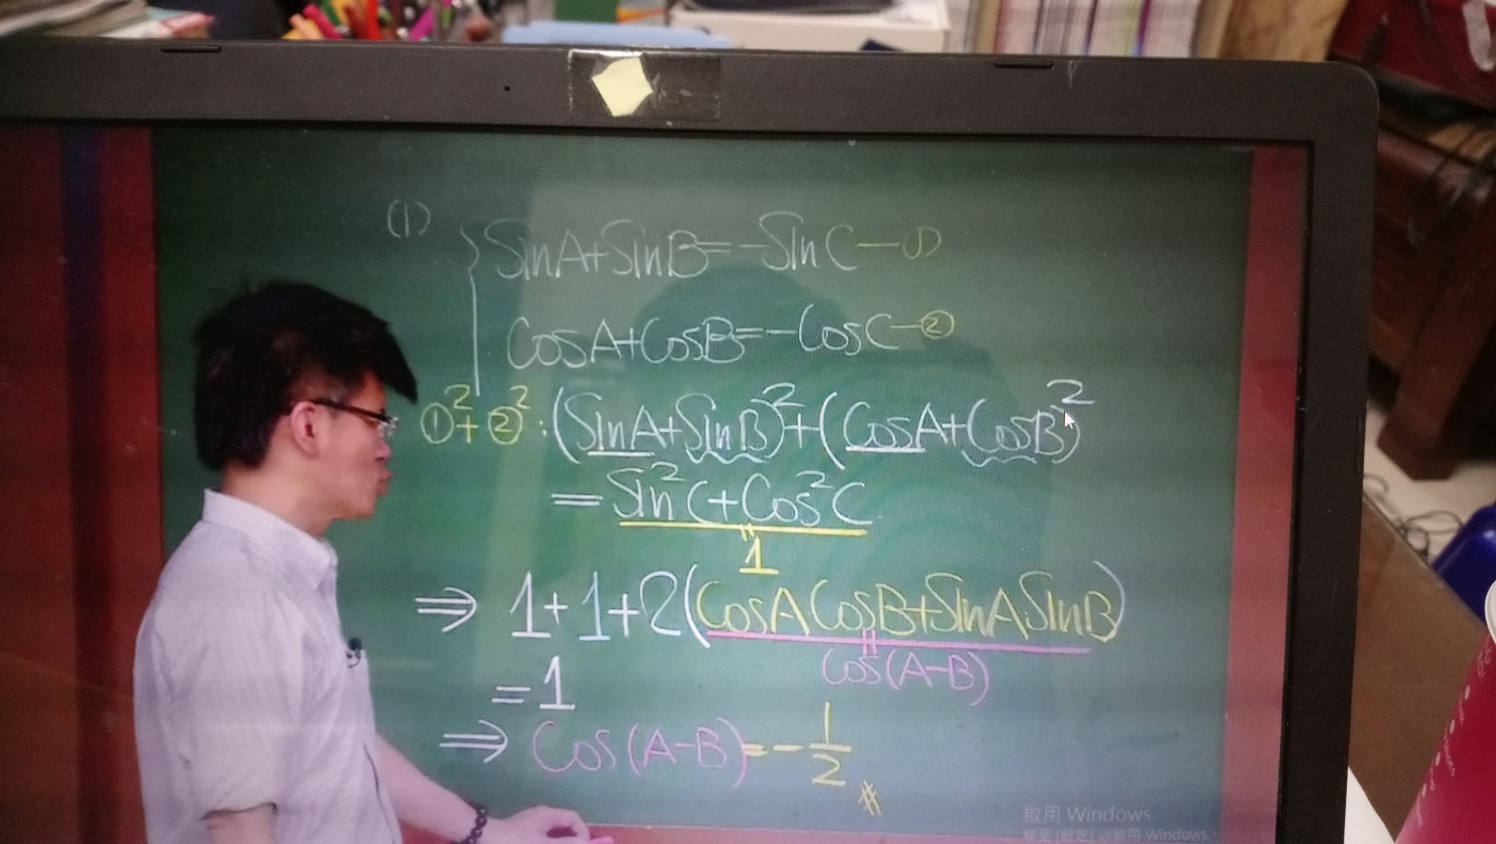 (1)
SinA+SinB=-SinC—①
CosA+CosB=-CosC—②
①²+②²:(SinA+SinB)²+(CosA+CosB)²
=Sin²C+Cos²C
1
⇒ 1+1+2(CosACosB+SinASinB)
Cos(A-B)
=1
⇒ Cos(A-B)=-1/2 #
啟用 Windows
移至 [設定] 以啟用 Windows。